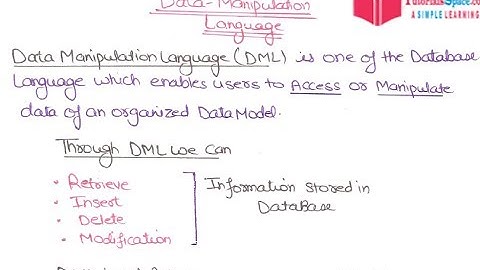 Data-Manipulation
Language
TutorialsSpace.co
A SIMPLE LEARNING
Data Manipulation Language (DML) is one of the Database
Language which enables users to Access or Manipulate
data of an organized Data Model.
Through DML we can
• Retrieve
• Insert
• Delete
• Modification
Information stored in
DataBase